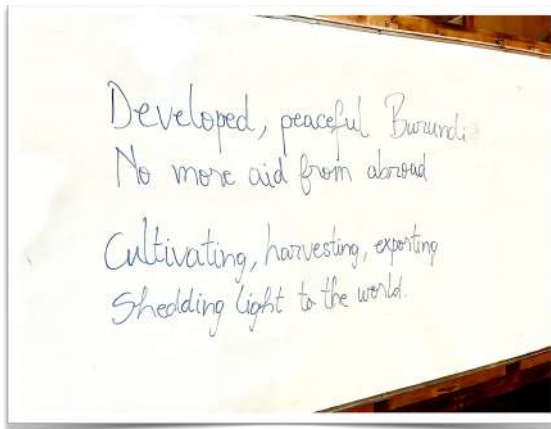 Developed, peaceful Burundi
No more aid from abroad
Cultivating, harvesting, exporting
Shedding light to the world.